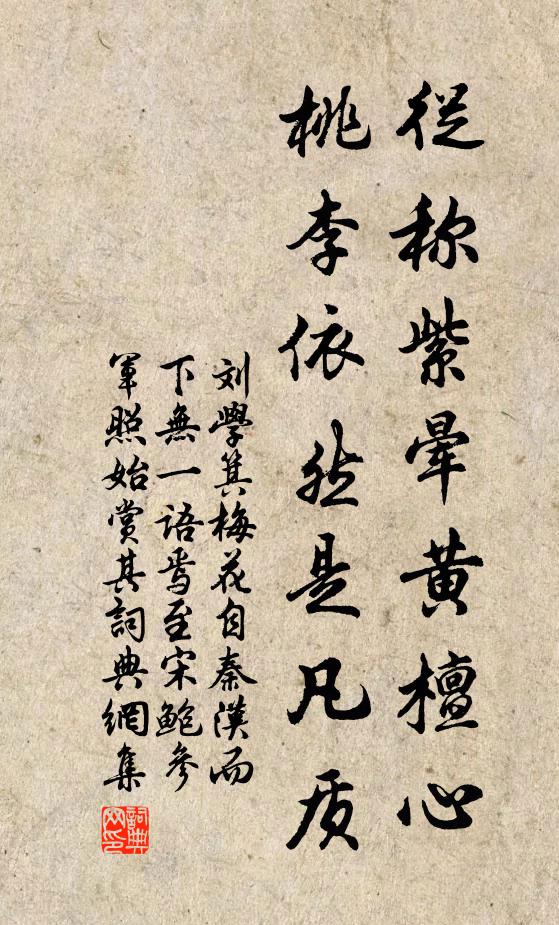 從称紫暈黄檀心
桃李依然是凡质
刘學箕梅花自秦漢而
下無一语焉至宋鲍参
軍照始赏其詞典網集
詞典网印